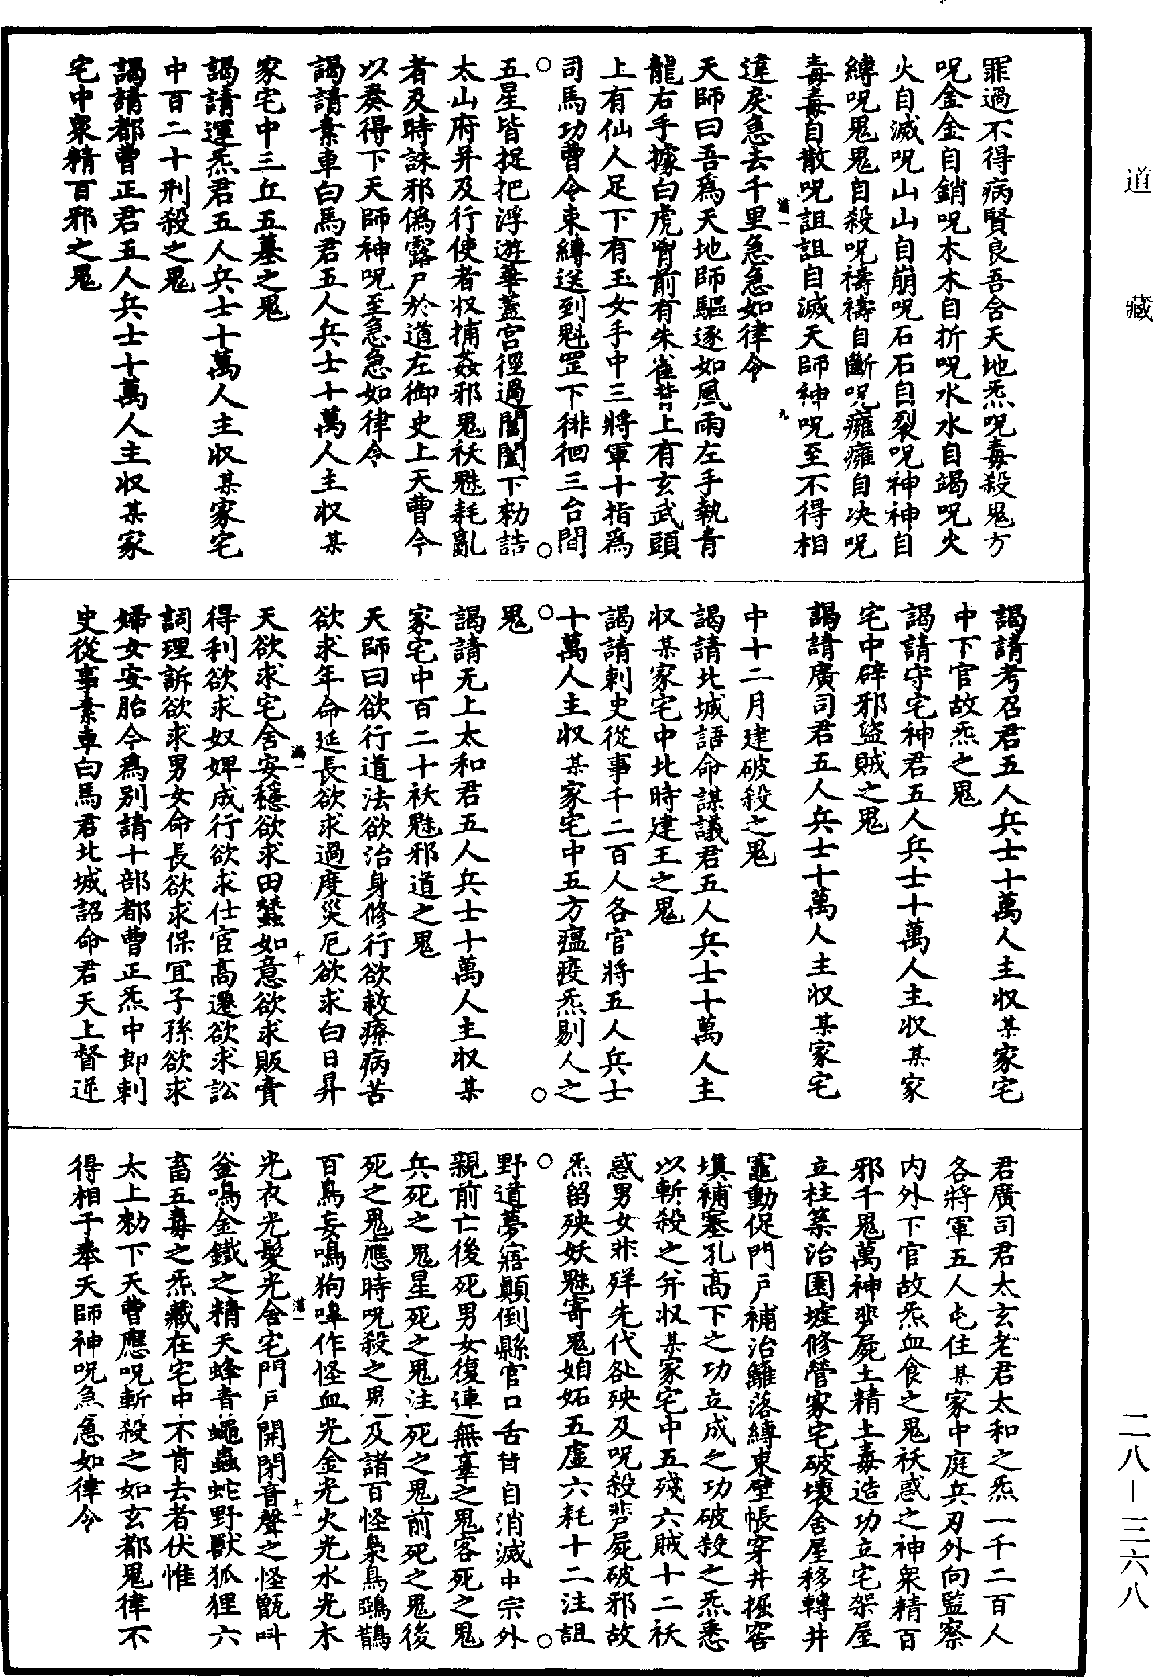 道藏
二八—三六八
罪過不得病賢良吾含天地炁呪毒殺鬼方
呪金金自銷呪木木自折呪水水自竭呪火
火自滅呪山山自崩呪石石自裂呪神神自
縛呪鬼鬼自殺呪禱禱自斷呪癰癰自決呪
毒毒自散呪詛詛自滅天師神呪至不得相
滿一 九
違戾急去千里急急如律令
天師曰吾爲天地師驅逐如風雨左手執青
龍右手據白虎胷前有朱雀背上有玄武頭
上有仙人足下有玉女手中三將軍十指爲
司馬功曹令束縛送到魁罡下徘徊三台間
五星皆捉把浮遊華蓋宮徑過閶闔下勑誥
太山府并及行使者収捕姦邪鬼袄魅耗亂
者及時誅邪僞露尸於道左御史上天曹今
以奏得下天師神呪至急急如律令
謁請素車白馬君五人兵士十萬人主収某
家宅中三丘五墓之鬼
謁請運炁君五人兵士十萬人主収某家宅
中百二十刑殺之鬼
謁請都曹正君五人兵士十萬人主収某家
宅中衆精百邪之鬼
謁請考召君五人兵士十萬人主収某家宅
中下官故炁之鬼
謁請守宅神君五人兵士十萬人主収某家
宅中辟邪盜賊之鬼
謁請廣司君五人兵士十萬人主収某家宅
中十二月建破殺之鬼
謁請北城語命謀議君五人兵士十萬人主
収某家宅中北時建王之鬼
謁請刺史從事千二百人各官將五人兵士
十萬人主収某家宅中五方瘟疫炁剔人之
鬼
謁請无上太和君五人兵士十萬人主収某
家宅中百二十袄魅邪道之鬼
天師曰欲行道法欲治身修行欲救療病苦
欲求年命延長欲求過度災厄欲求白日昇
滿一 十
天欲求宅舍安穩欲求田蠶如意欲求販賣
得利欲求奴婢成行欲求仕官高遷欲求訟
詞理訴欲求男女命長欲求保宜子孫欲求
婦女安胎今爲別請十部都曹正炁中郎刺
史從事素車白馬君北城詔命君天上督逆
君廣司君太玄老君太和之炁一千二百人
各將軍五人屯住某家中庭兵刃外向監察
内外下官故炁血食之鬼袄惑之神衆精百
邪千鬼萬神飛屍土精土毒造功立宅架屋
立柱築治園墟修營家宅破壞舍屋移轉井
竈動促門戸補治籬落縛束壁帳穿井掘窖
塡補塞孔高下之功立成之功破殺之炁悉
以斬殺之并収某家宅中五殘六賊十二袄
惑男女非殃先代咎殃及呪殺飛屍破邪故
炁留殃妖魅寄鬼媢妬五虛六耗十二注詛
野道夢寤顛倒縣官口舌皆自消滅中宗外
親前亡後死男女復連無辜之鬼客死之鬼
兵死之鬼星死之鬼注死之鬼前死之鬼後
死之鬼應時呪殺之男及諸百怪梟鳥鵶鵲
百鳥妄鳴狗嘷作怪血光金光火光水光木
滿一 十一
光夜光髮光舍宅門戸開閉音聲之怪甑叫
釜鳴金鐵之精天蜂青蠅蟲蛇野獸狐狸六
畜五毒之炁藏在宅中不肯去者伏惟
太上勑下天曹應呪斬殺之如玄都鬼律不
得相干奉天師神呪急急如律令